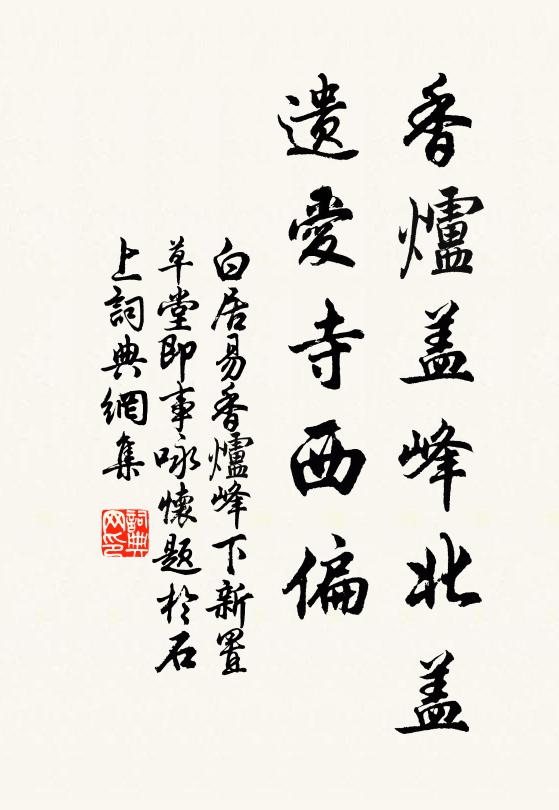 香爐盖峰北盖
遺愛寺西偏
白居易香爐峰下新置
草堂即事咏懷題於石
上詞典網集
詞典
网印